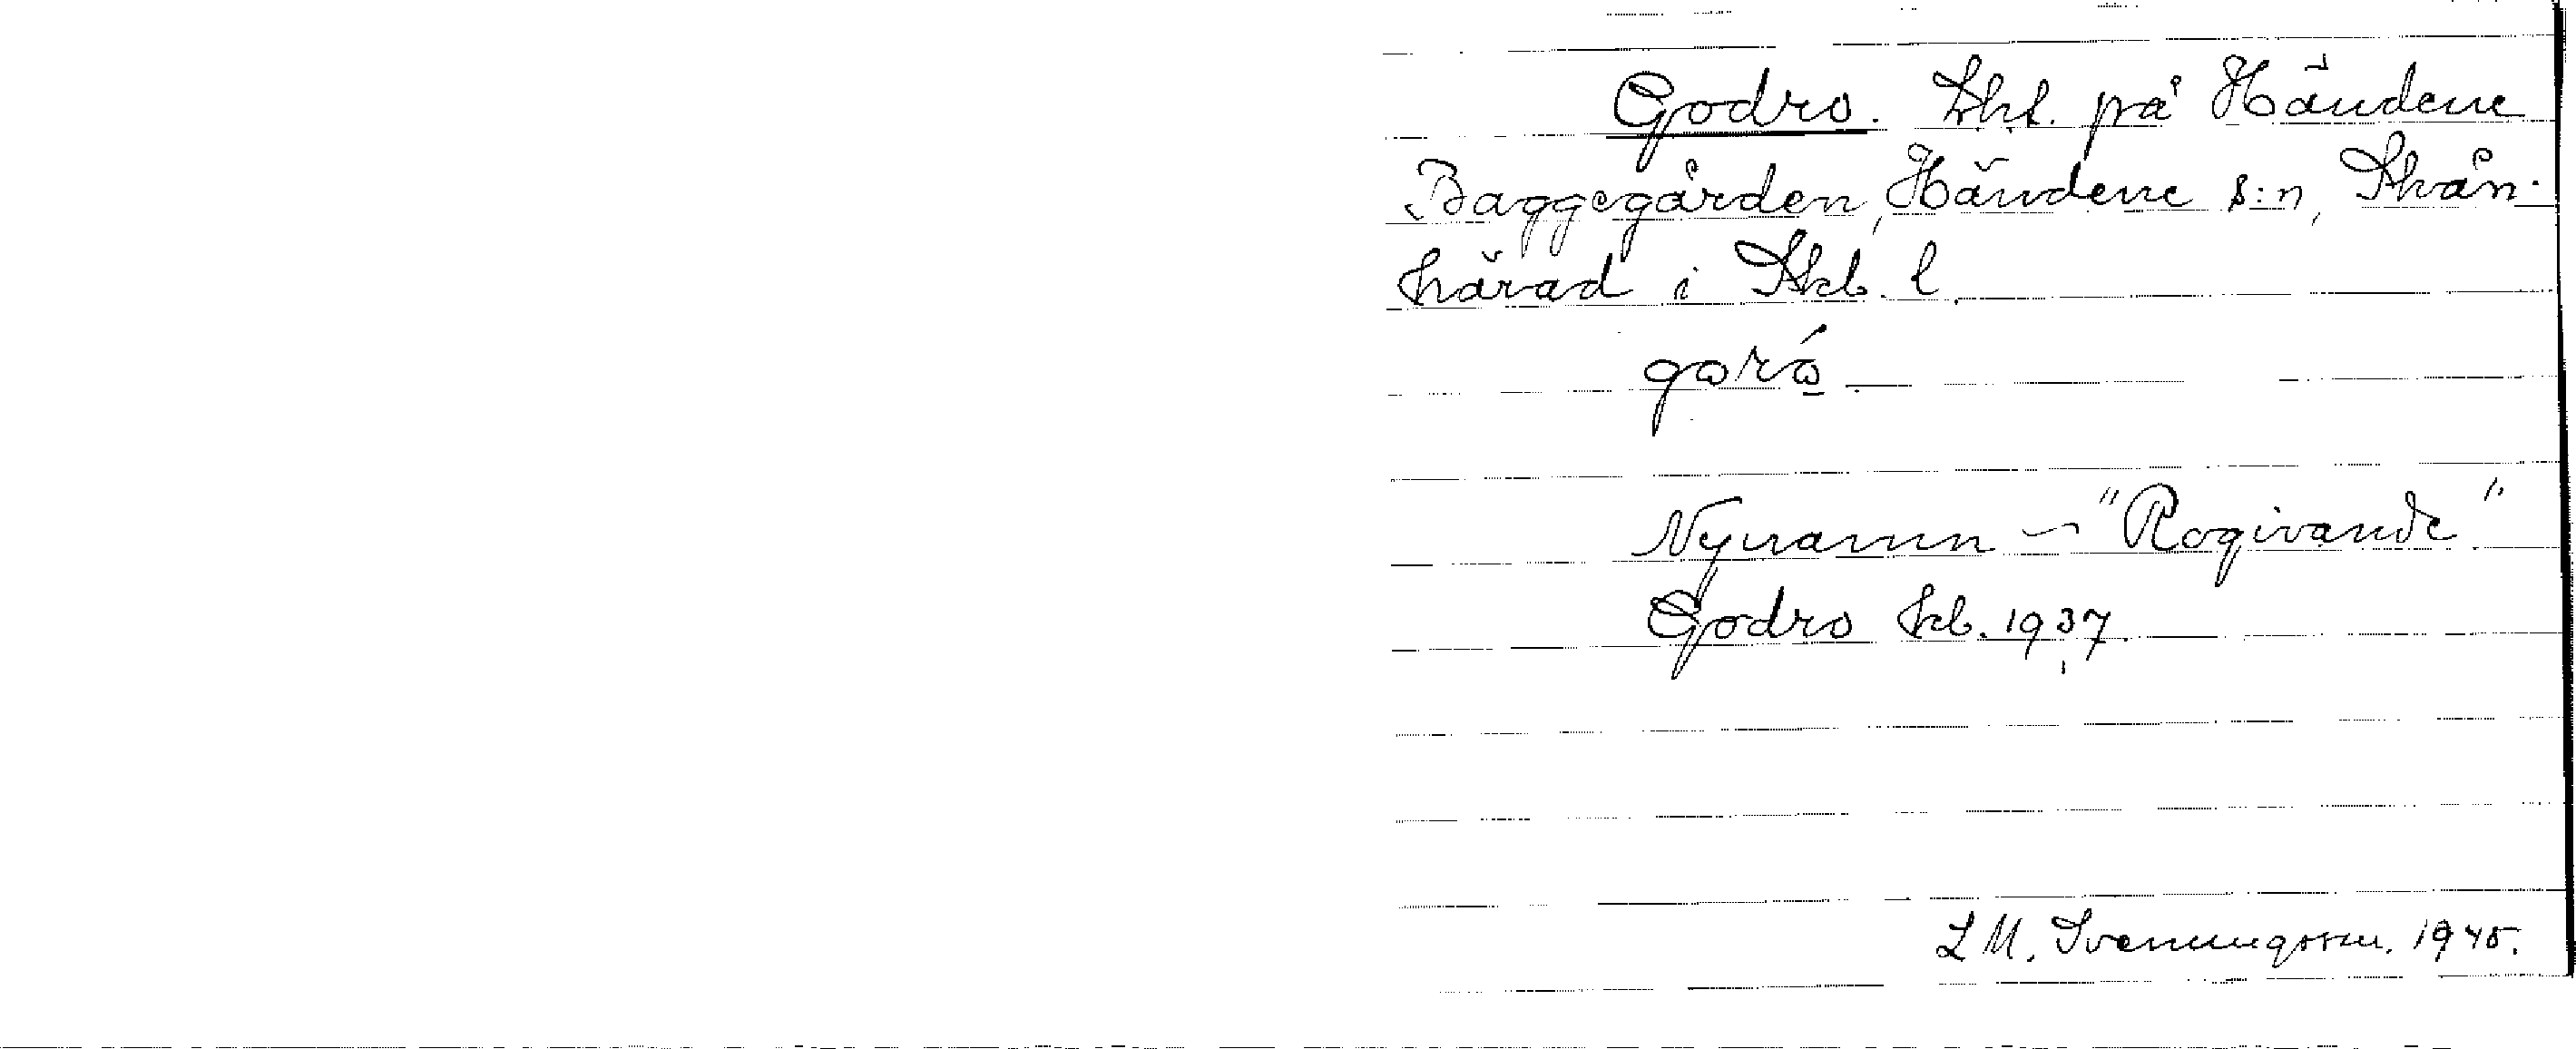 Godro. Lht. på Händene
Baggegården, Händene s:n, Skån.
härad i Skb. l.
goró.
Nynamn – "Rogivande"
Godro kb. 1937.
L M. Svenungsson. 1945.